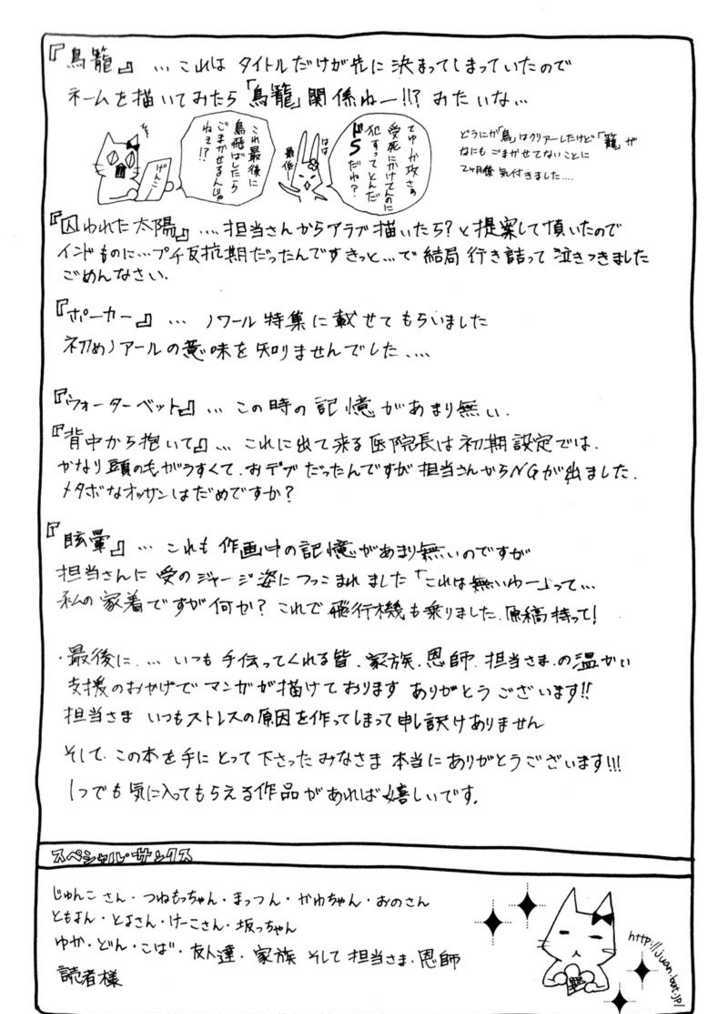 『鳥籠』… これは タイトルだけが先に 決まってしまっていたので
ネームを描いてみたら「鳥籠」関係ねー!!? みたいな…
げんこ
これ最後に
鳥飛ばしたら
ごまかせるんじゃ
ねぇ!?
はは
最低
てゆーか攻さぁ
受死にかけてんのに
犯すってとんだ
ドSだわ?
どうにか「鳥」はクリアーしたけど「籠」が
なにも ごまかせてないことに
2ヶ月後 気付きました….
『囚われた太陽』…. 担当さんからアラブ描いたら?と提案して頂いたので
インドものに…プチ反抗期だったんですきっと…で 結局 行き詰って 泣きつきました
ごめんなさい.
『ポーカー』… ノワール特集に載せてもらいました
初めノアールの意味を知りませんでした….
『ウォーターベット』… この時の記憶があまり無い.
『背中から抱いて』… これに出て来る医院長は初期設定では.
かなり頭の毛がうすくて.おデブだったんですが担当さんからNGが出ました.
メタボなオッサンはだめですか?
『眩暈』… これも 作画中の記憶があまり無いのですが
担当さんに 受のジャージ姿につっこまれました「これは無いわー」って…
私の家着ですが何か? これで飛行機も乗りました.原稿持って!
・最後に.… いつも手伝ってくれる皆.家族.恩師.担当さま.の温かい
支援のおかげで マンガが描けております ありがとうございます!!
担当さま いつもストレスの原因を作ってしまって申し訳けありません
そして.この本を手にとって下さったみなさま 本当にありがとうございます!!!
1つでも気に入ってもらえる作品があれば嬉しいです.
スペシャルサンクス
じゅんこさん・つねもっちゃん・まっつん・かわちゃん・おのさん
ともよん・とよさん・けーこさん・坂っちゃん
ゆか・どん・こば・友人達・家族 そして 担当さま・恩師
読者様